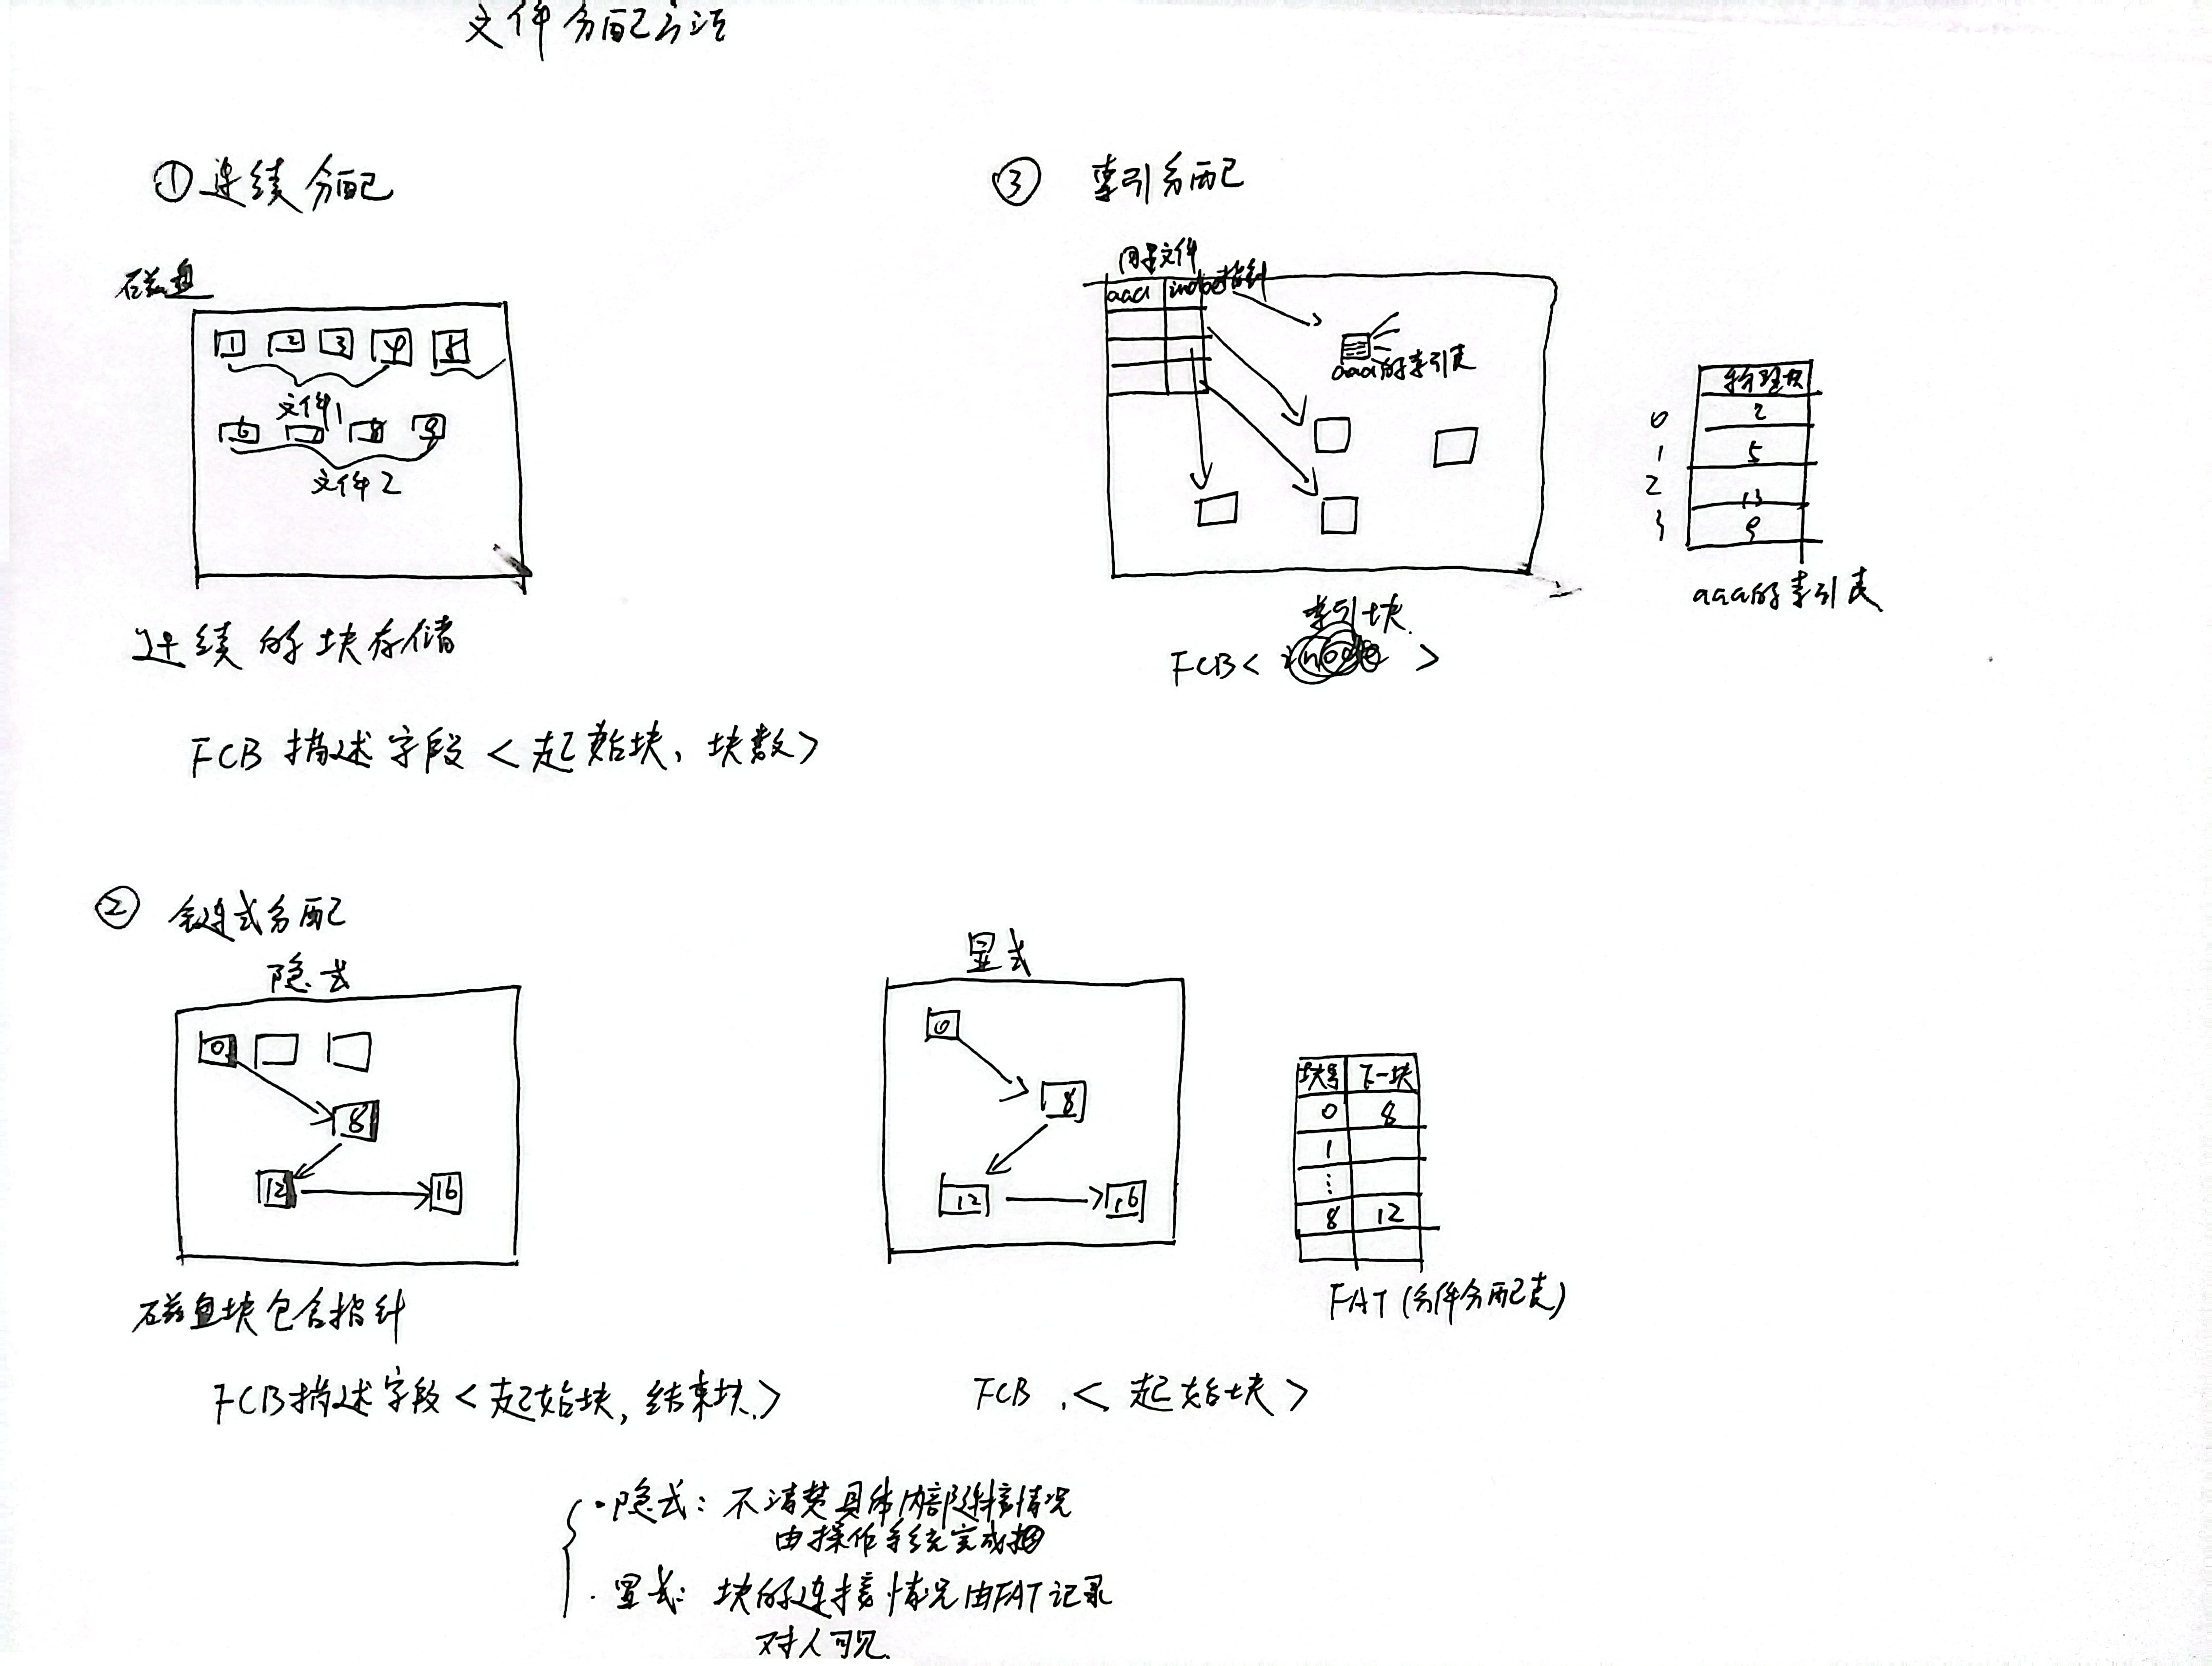 文件分配方法
①连续分配
磁盘
1 2 3 4 5
文件1
6 7 8 9
文件2
连续的块存储
FCB 描述字段<起始块,块数>
③ 索引分配
目录文件
aaa inode指针
aaa的索引表
物理块
0 2
1 5
2 13
3 9
aaa的索引表
索引块
FCB< >
② 链式分配
隐式
0
8
12 16
磁盘块包含指针
FCB描述字段<起始块,结束块>
显式
0
8
12 16
块号 下一块
0 8
1
⋮
8 12
FAT(文件分配表)
FCB <起始块>
·隐式:不清楚具体内部连接情况
由操作系统完成
·显式:块的连接情况由FAT记录
对人可见.